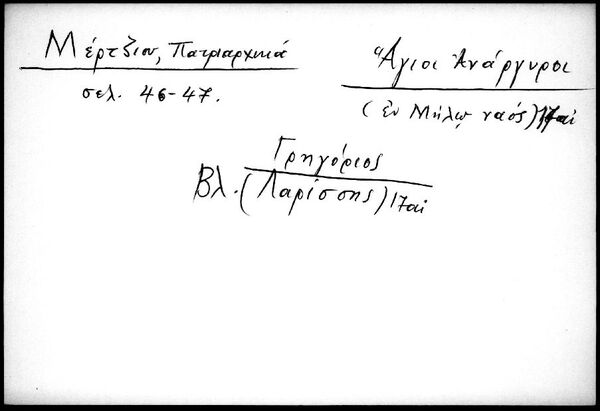 Μέρτζιου, Πατριαρχικά
σελ. 46-47.
Ἅγιοι Ἀνάργυροι
(ἐν Μήλῳ ναός) 17αἰ
Γρηγόριος
Βλ. (Λαρίσσης) 17αἰ